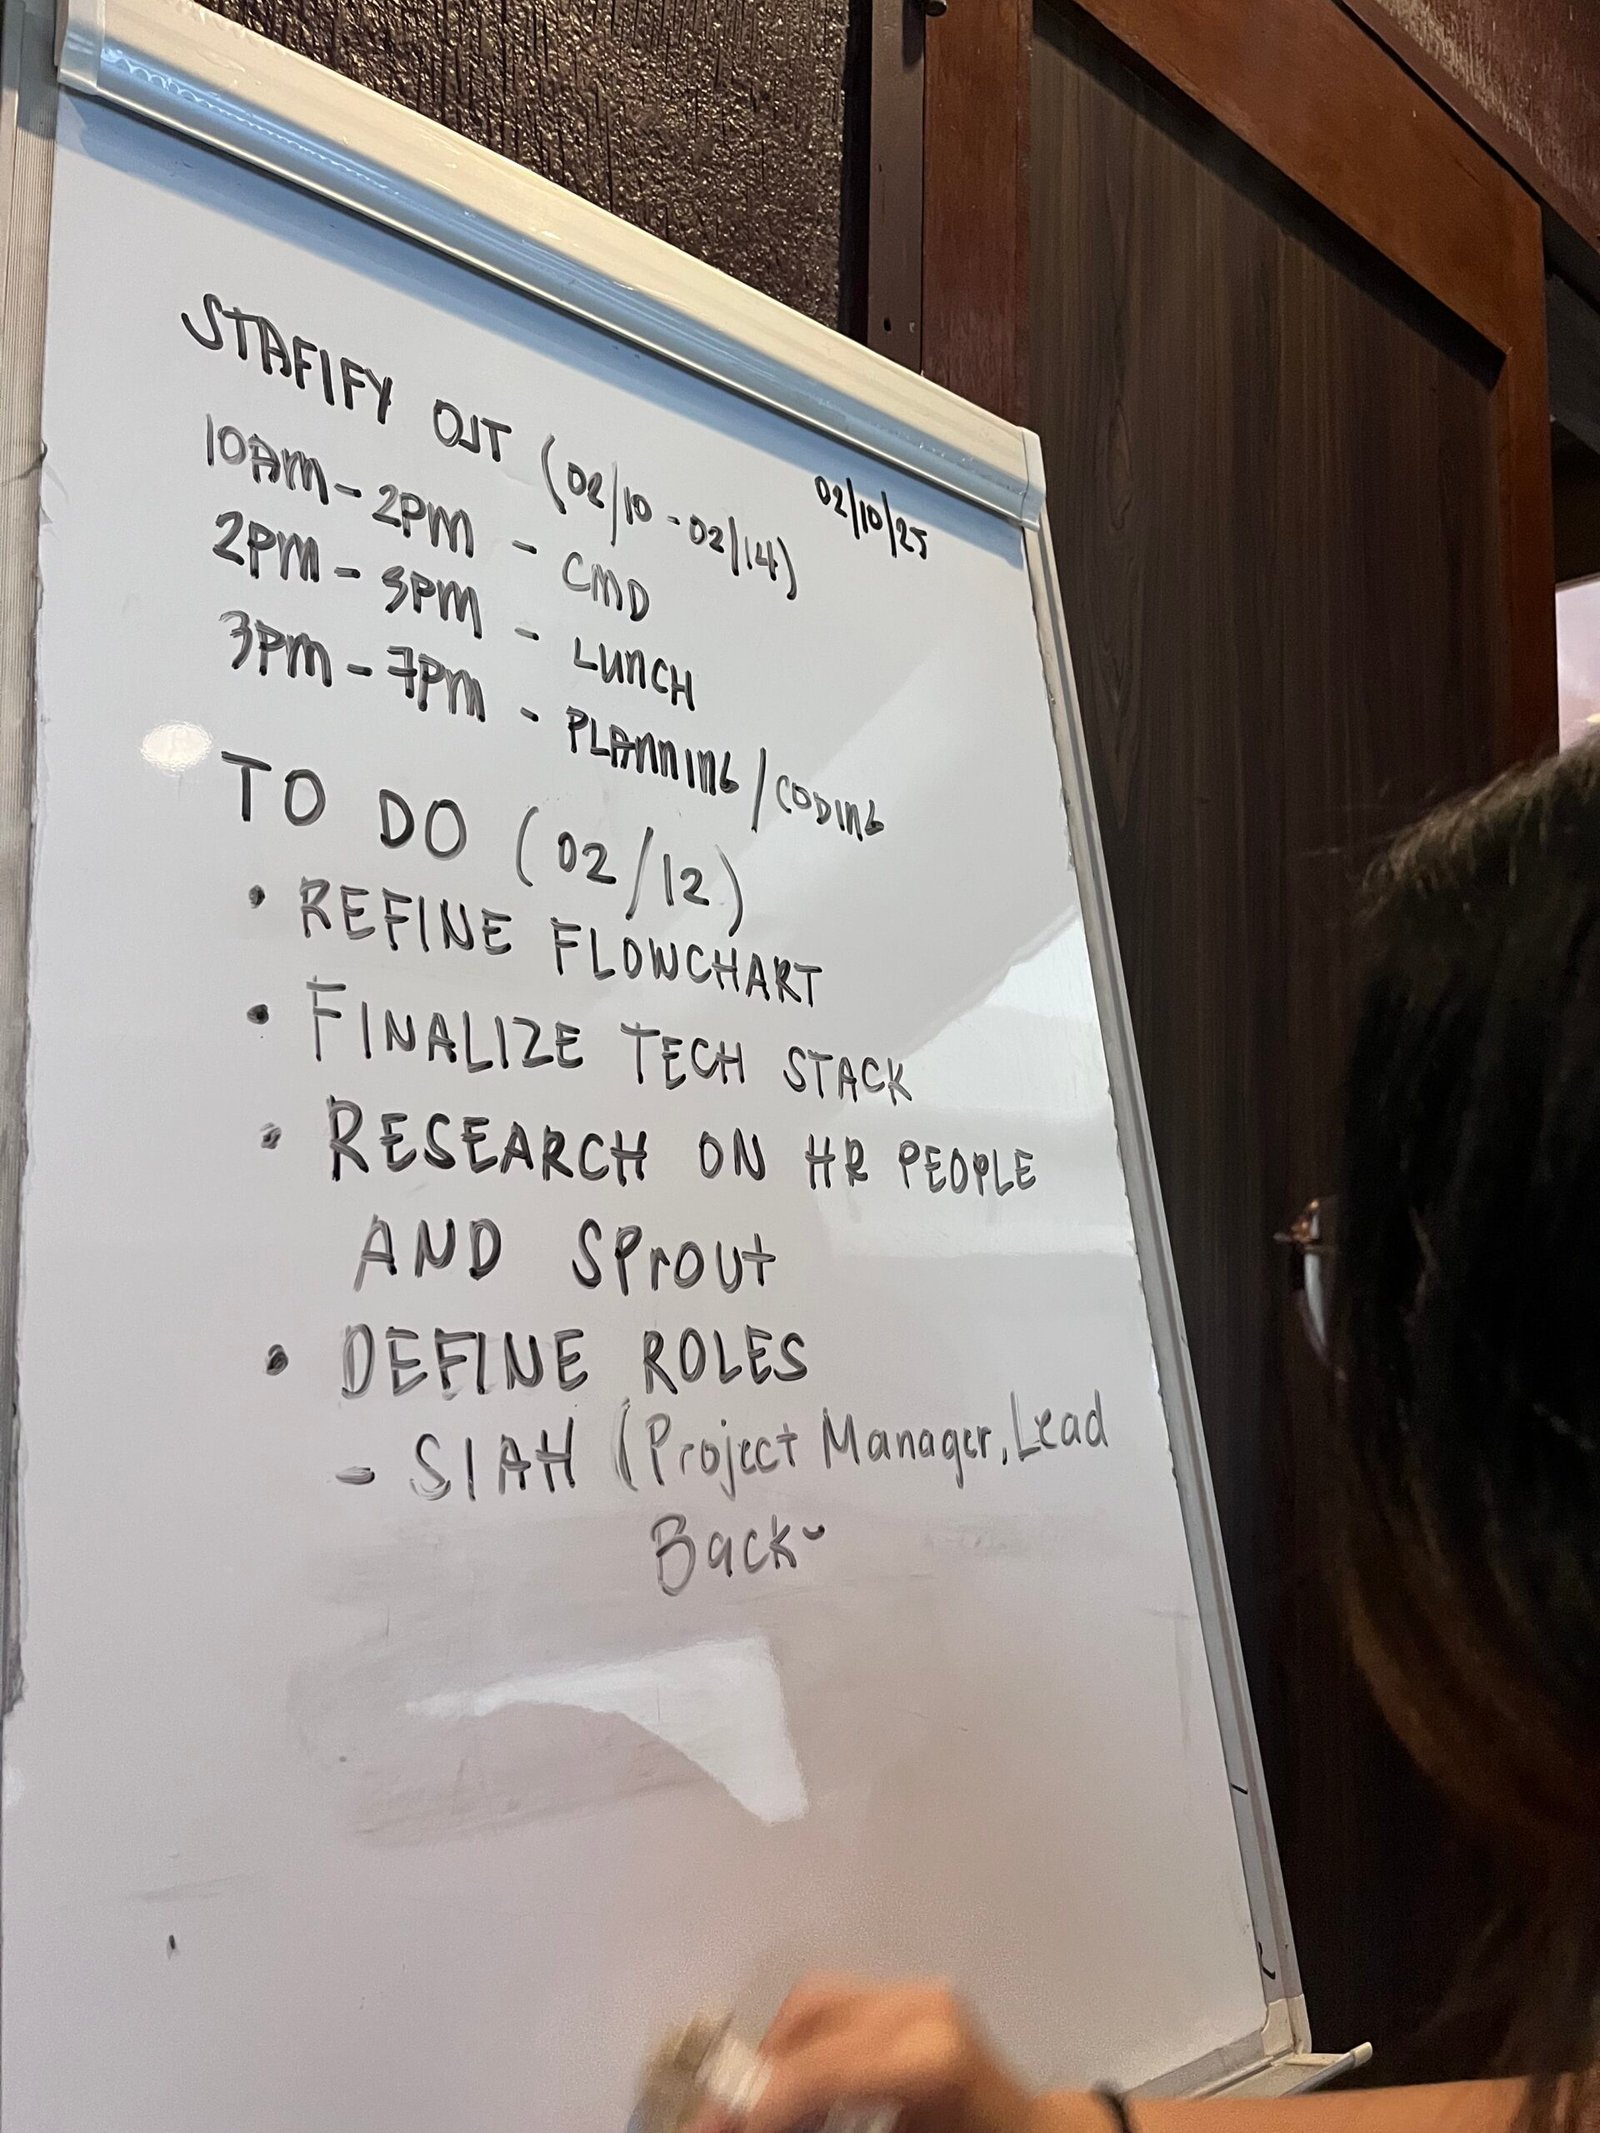 STAFIFY OJT (02/10 - 02/14) 02/10/25
10AM - 2PM - CMD
2PM - 3PM - LUNCH
3PM - 7PM - PLANNING / CODING
TO DO (02/12)
• REFINE FLOWCHART
• FINALIZE TECH STACK
• RESEARCH ON HR PEOPLE
AND SProut
• DEFINE ROLES
- SIAH (Project Manager, Lead
Back-